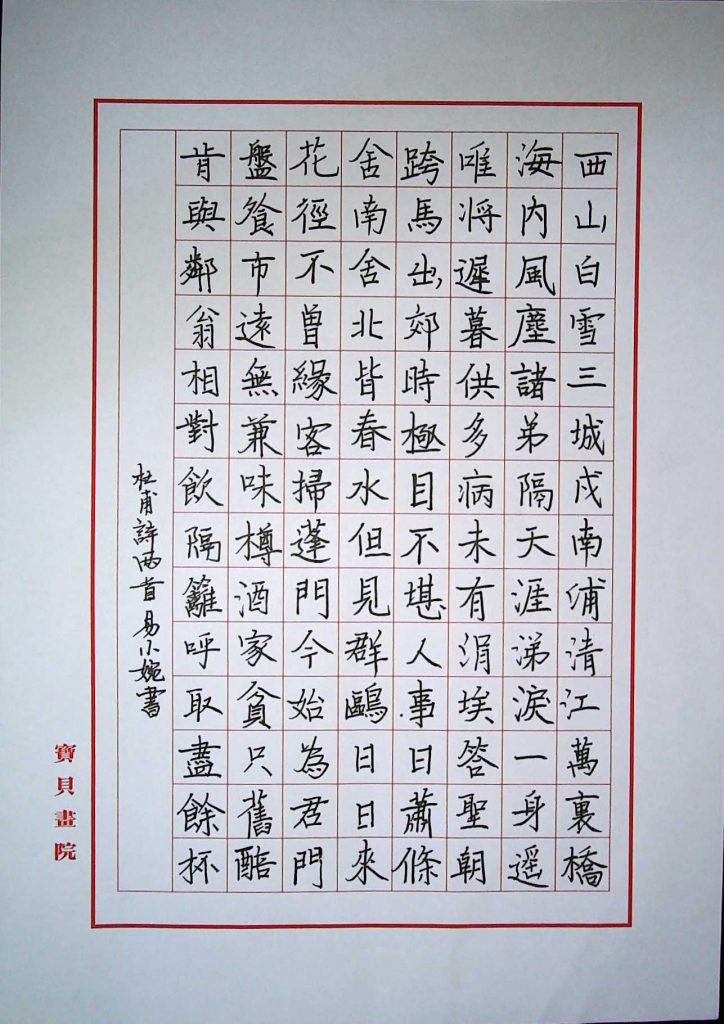 西山白雪三城戍南浦清江萬裏橋
海内風塵諸弟隔天涯涕淚一身遥
唯将遲暮供多病未有涓埃答聖朝
跨馬出郊時極目不堪人事日蕭條
舍南舍北皆春水但見群鷗日日來
花徑不曾緣客掃蓬門今始為君門
盤飧市遠無兼味樽酒家貧只舊醅
肯與鄰翁相對飲隔籬呼取盡餘杯
杜甫詩两首易小婉書
寶貝畫院